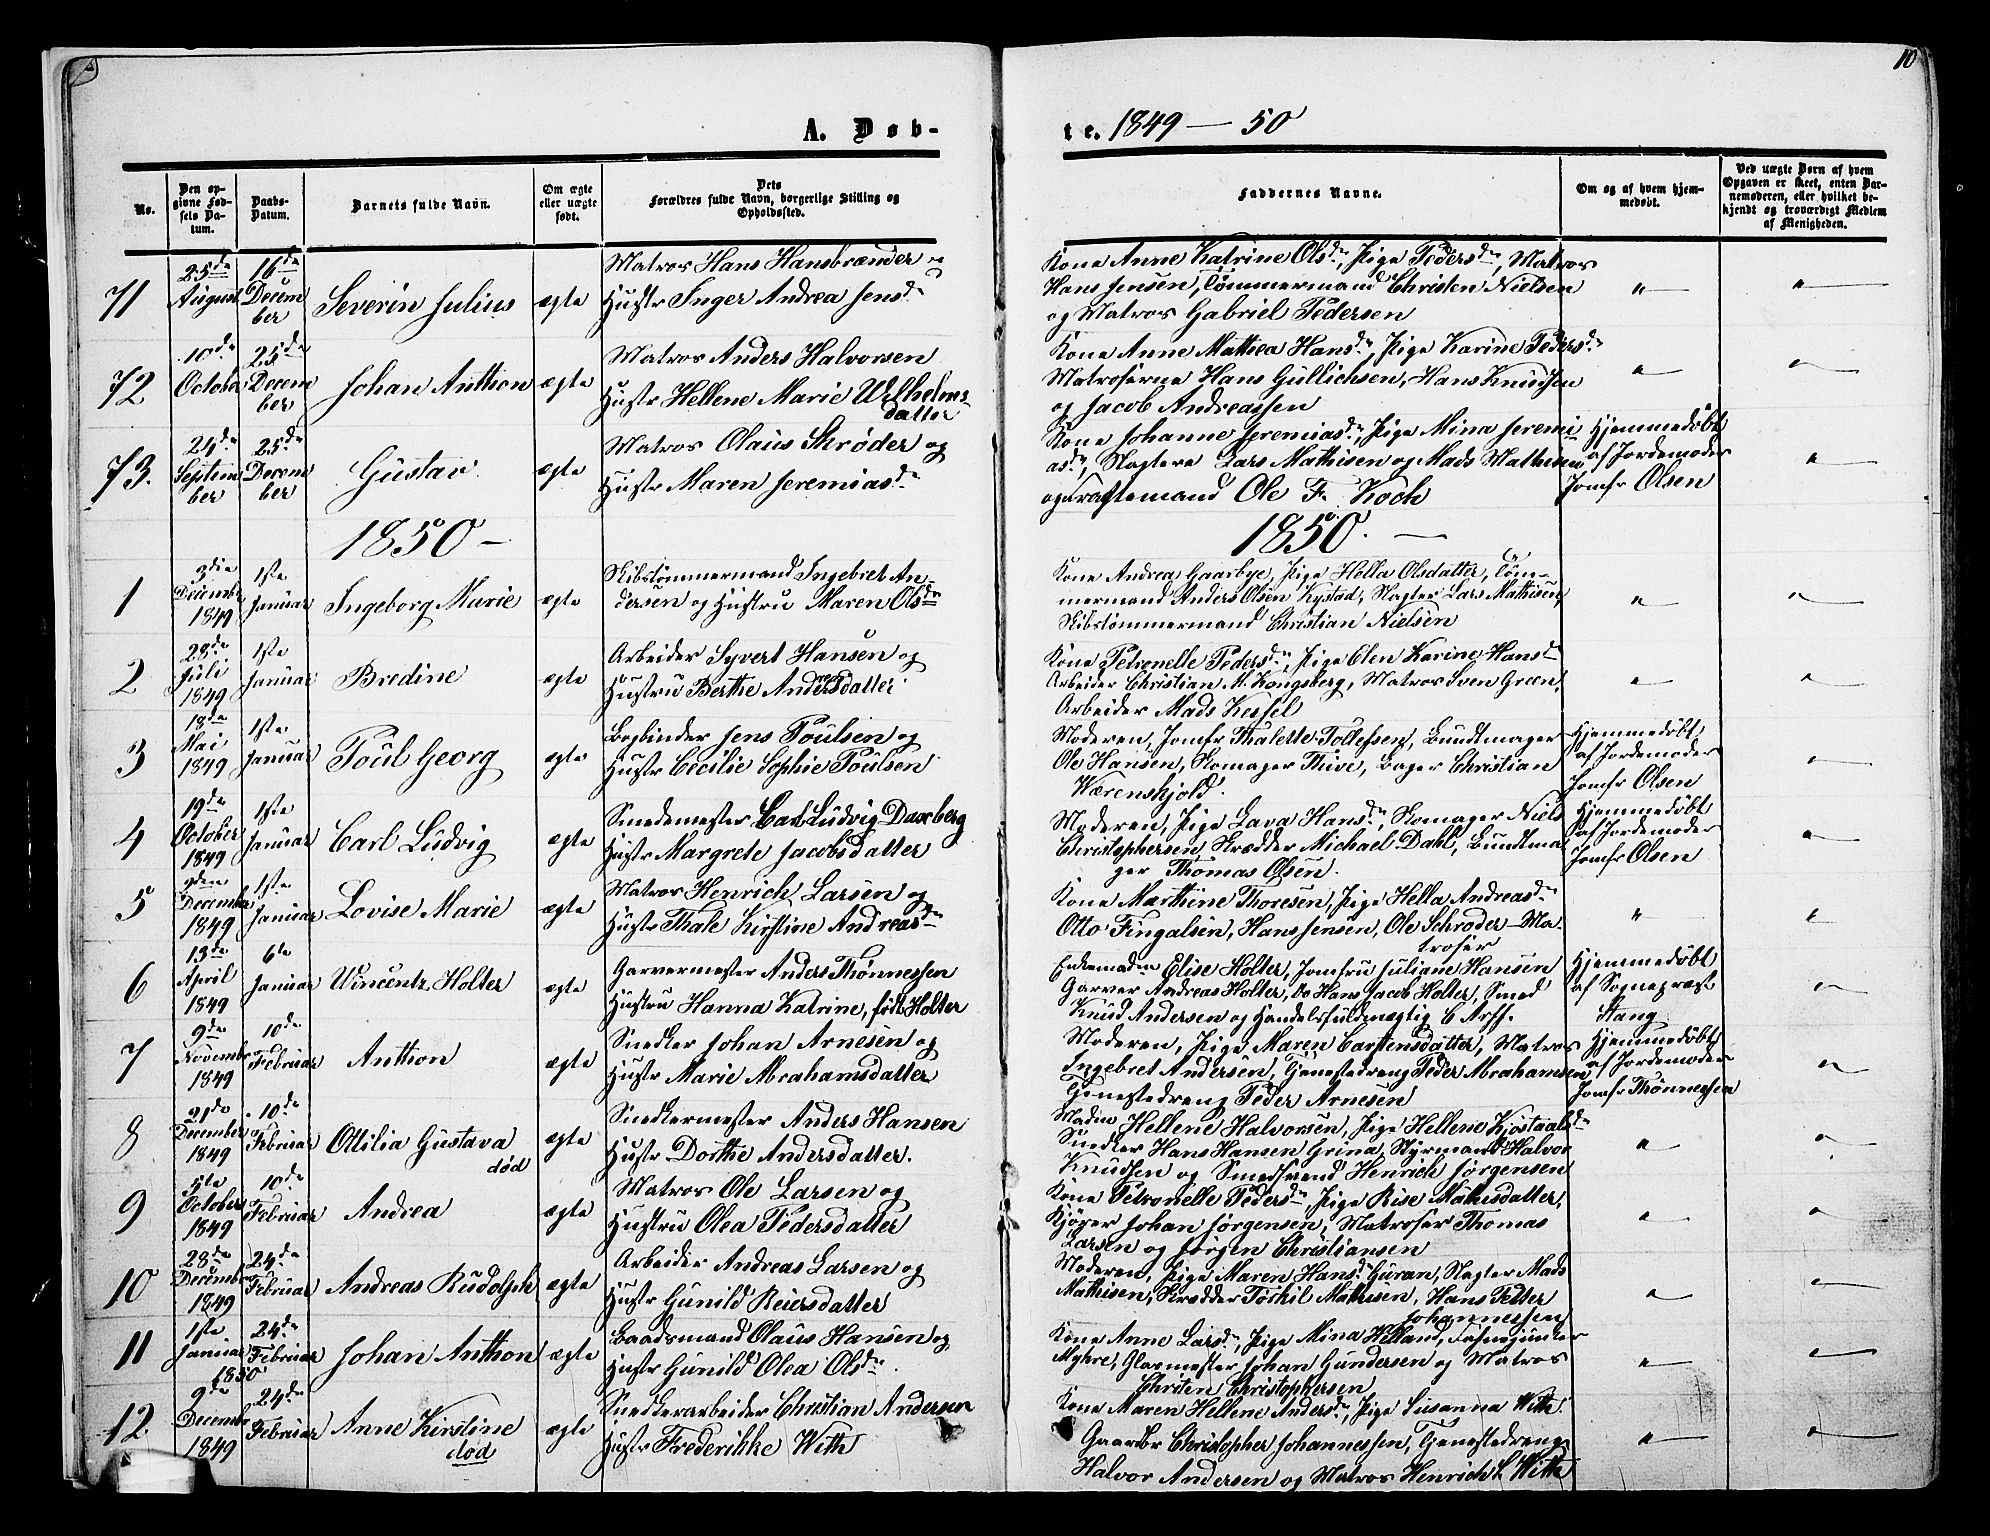 10
A. Døb-
te. 1849 — 50
No.
Den op-
givne Fød-
sels Da-
tum.
Daabs-
Datum.
Barnets fulde Navn.
Om ægte
eller uægte
født.
Dets
Forældres fulde Navn, borgerlige Stilling og
Opholdssted.
Faddernes Navne.
Om og af hvem hjem-
medøbt.
Ved uægte Børn af hvem
Opgaven er skeet, enten Bar-
nemoderen, eller hvilket be-
kjendt og troværdigt Medlem
af Menigheden.
71
25de
August
16de
Decem
ber
Severin Julius
ægte
Matros Hans Hansbrænder og
Hustr Inger Andrea Jensdr
Kone Anne Katrine Olsdr, Pige Pedersdr, Matros
Hans Jensen, Tømmermand Christen Nielsen
og Matros Gabriel Pedersen
"
"
72
10de
October
25de
Decem
ber
Johan Anthon
ægte
Matros Anders Halvorsen
Hustr Hellene Marie Wilhelms-
datter
Kone Anne Mathea Hansdr, Pige Karine Pedersdr
Matroserne Hans Gullichsen, Hans Knudsen
og Jacob Andreassen
"
"
73.
24de
Septem
ber
25de
Decem
ber
Gustav
ægte
Matros Olaus Skrøder og
Hustr Maren Jeremiasdr
Kone Johanne Jeremiasdr, Pige Mina Jeremi
asdr, Slagtere Lars Mathisen og Mads Mathisen
og Ole F. Koch
Hjemmedøbt
af Jordemoder
Jomfr Olsen
"
1850 —
1850. —
1
3die
Decembr
1849
1ste
Januar
Ingeborg Marie
ægte
Skibstømmermand Ingebret An-
dersen og Hustru Maren Olsdr
Kone Andrea Gaarbye, Pige Holla Olsdatter, Tøm-
mermand Anders Olsen Kystad, Slagter Lars Mathisen,
Skibstømmermand Christian Nielsen
"
"
2
28de
Juli
1849
1ste
Januar
Bredine
ægte
Arbeider Syvert Hansen og
Hustru Berthe Andersdatter
Kone Petronelle Pedersdr, Pige Elen Karine Hansdr
Arbeider Christian M. Kongsberg, Matros Sven Green,
Arbeider Mads Kessel
"
"
3
18de
Mai
1849
1ste
Januar
Poul Georg
ægte
Bogbinder Jens Poulsen og
Hustr Cecilie Sophie Poulsen
Moderen, Jomfr Thalette Tollefsen, Bundtmager
Ole Hansen, Skomager Thive, Bager Christian
Wærenskjold.
Hjemmedøbt
af Jordemoder
Jomfr Olsen
"
4
19de
October
1849
1ste
Januar
Carl Ludvig
ægte
Smedemester Carl Ludvig Daxberg
Hustr Margrete Jacobsdatter
Moderen, Pige Lava Hansdr, Skomager Niels
Christophersen, Skrædder Michael Dahl, Bundtma
ger Thomas Olsen.
Hjemmedøbt
af Jordemoder
Jomfr Olsen
"
5
2den
December
1849
1ste
Januar
Lovise Marie
ægte
Matros Henrich Larsen og
Hustr Thale Kirstine Andreasdr
Kone Marthine Thoresen, Pige Hella Andreasdr
Otto Fingalsen, Hans Jensen, Ole Schrøder Ma-
troser
"
"
6
13de
April
1849
6te
Januar
Wincentz Holter
ægte
Garvermester Anders Thønnessen
Hustru Hanna Katrine, født Holter
Enkemadm Elise Holter, Jomfru Juliane Hansen
Garver Andreas Holter, Do Hans Jacob Holter, Smed
Knud Andersen og Handelsfuldmægtig C Arff.
Hjemmedøbt
af Sognepræst
Stang
"
7
9de
Novembr
1849
10de
Februar
Anthon
ægte
Snedker Johan Arnesen og
Hustr Marie Abrahamsdatter
Moderen, Pige Maren Carstensdatter, Matros
Ingebret Andersen, Tjenestedreng Peder Abrahamsen
Tjenestedreng Peder Arnesen
Hjemmedøbt
af Jordemoder
Jomfr Thønnessen
"
8
21de
December
1849
10de
Februar
Ottilia Gustava
død
ægte
Snedkermester Anders Hansen
Hustr Dorthe Andersdatter.
Madm Hellene Halvorsen, Pige Hellene Kjostaalsdr
Snedker Hans Hansen Grina, Styrmand Halvor
Knudsen og Smedsvend Henrich Jørgensen
"
"
9
5te
October
1849
10de
Februar
Andrea
ægte
Matros Ole Larsen og
Hustru Olea Pedersdatter
Kone Petronelle Pedersdr, Pige Rise Mathisdatter,
Kjøper Johan Jørgensen, Matroser Thomas
Larsen og Jørgen Christiansen
"
"
10
28de
Decembr
1849
24de
Februar
Andreas Rudolph
ægte
Arbeider Andreas Larsen og
Hustr Gunild Reiersdatter
Moderen, Pige Maren Hansdr Guran, Slagter Mads
Mathisen, Skrædder Torkil Mathisen, Hans Petter
Johannessen
"
"
11
1ste
Januar
1850
24de
Februar
Johan Anthon
ægte
Baadsmand Olaus Hansen og
Hustr Gunild Olea Olsdr
Kone Anne Larsdr, Pige Mina Heiland, Fahnejunker
Myhre, Glasmester Johan Gundersen og Matros
Christen Christophersen
"
"
12
9de
Decembr
1849
24de
Februar
Anne Kirstine
død
ægte
Snedkerarbeider Christian Andersen
Hustr Frederikke With
Kone Maren Hellene Andersdr, Pige Susanna With.
Gaardbr Christopher Johannessen, Tjenestedreng
Halvor Andersen og Matros Henrich L With
"
"